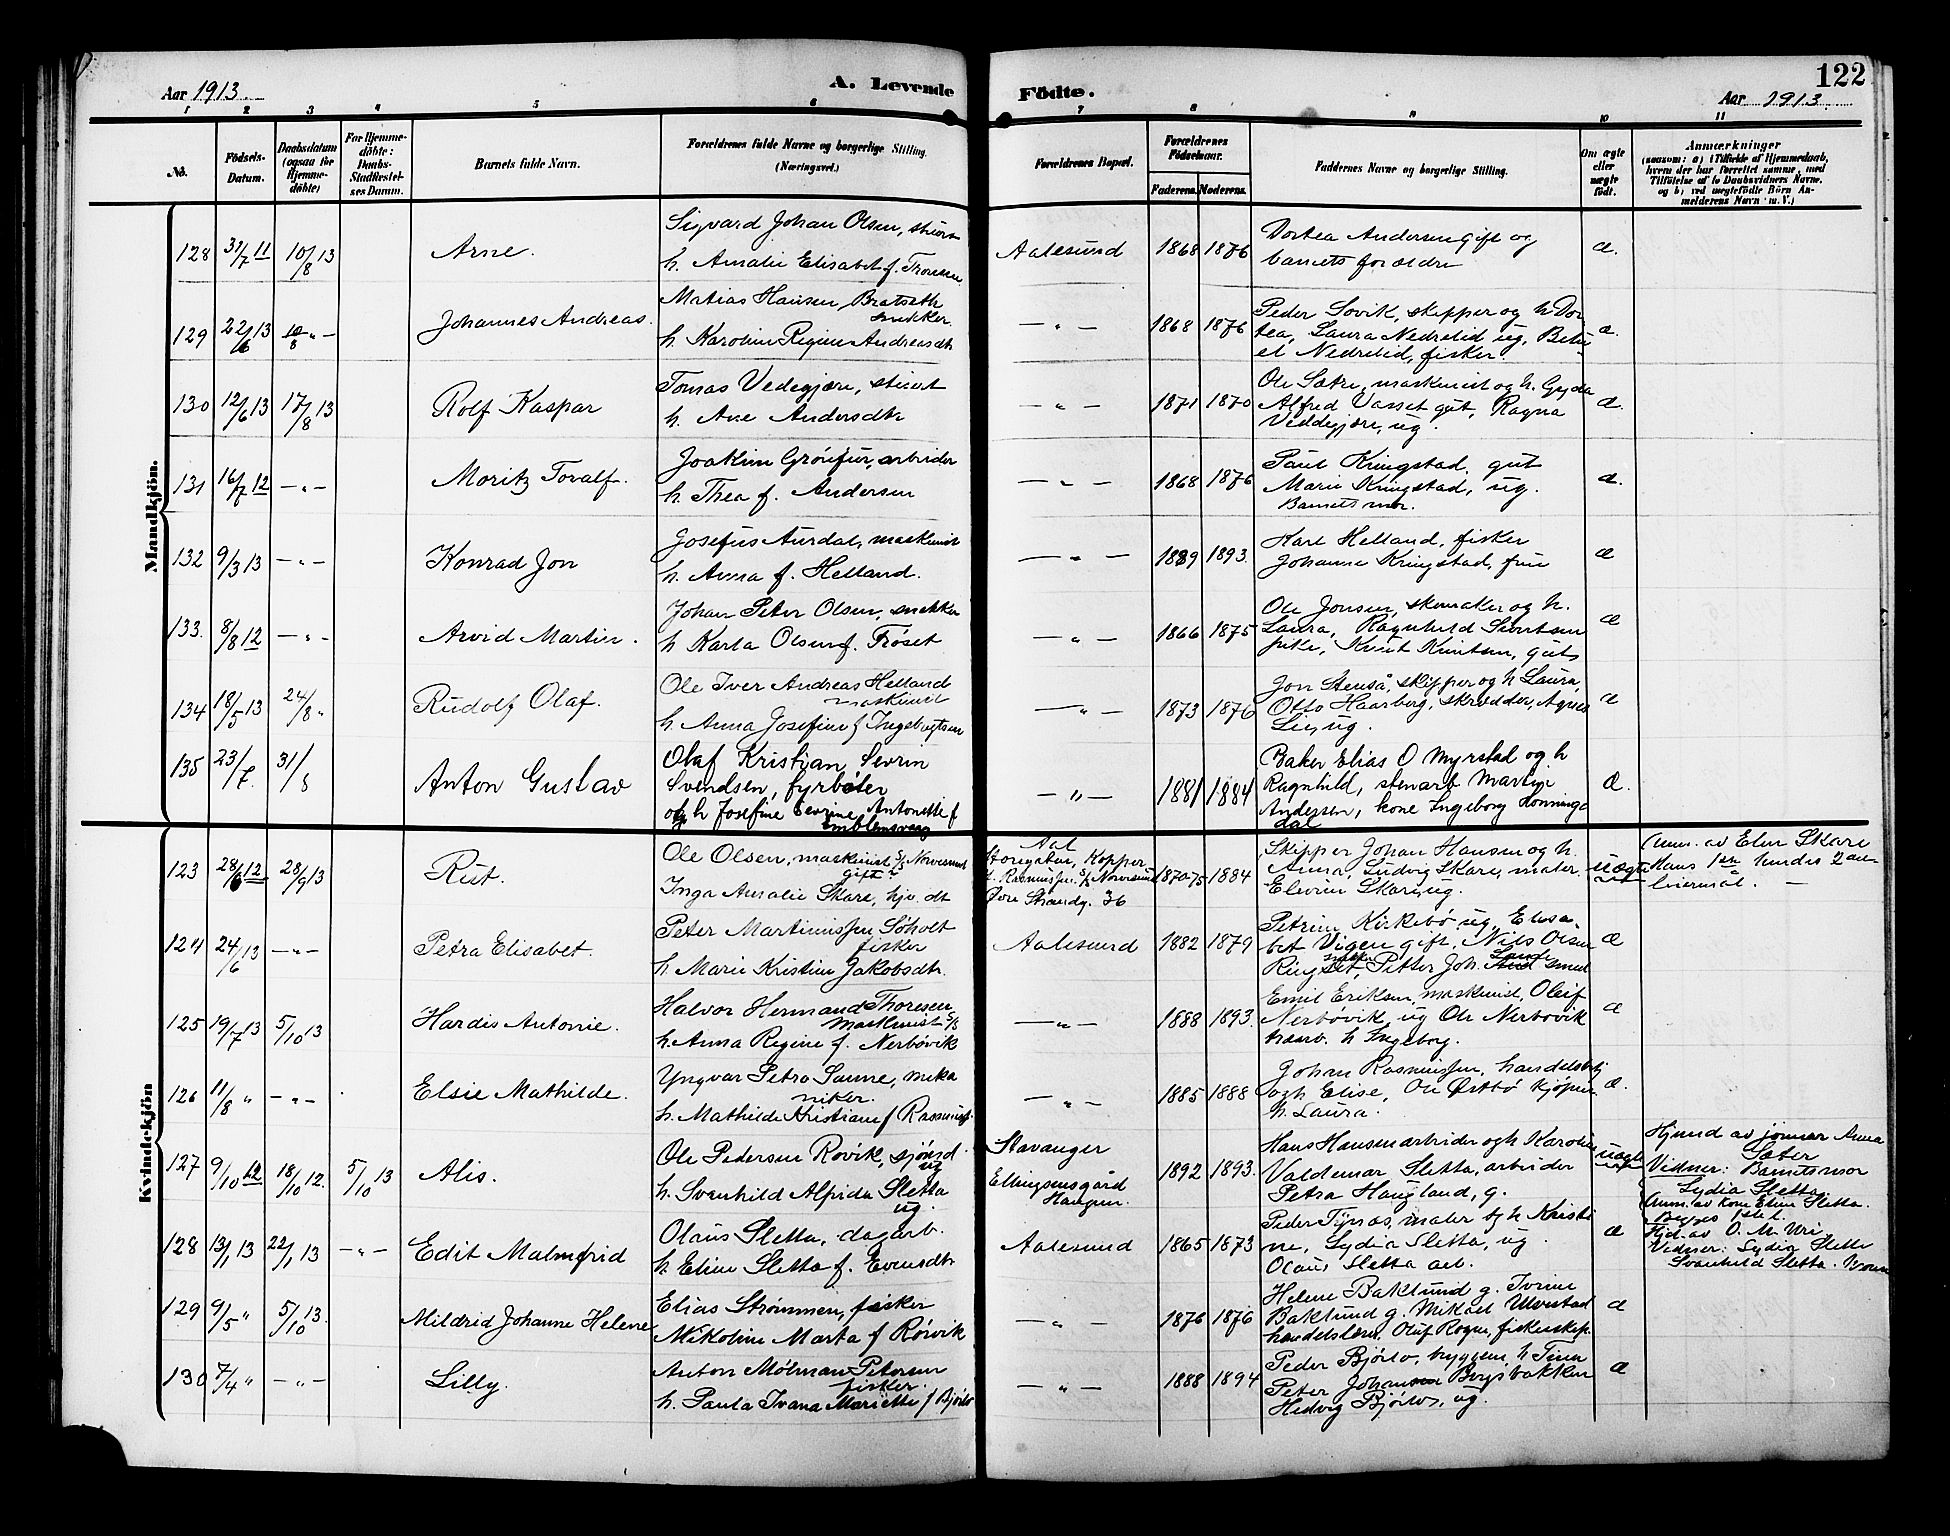 122
Aar 1913.
A. Levende
Födte.
Aar 1913.
1 2 3 4 5 6 7 8 9 10 11
No.
Födsels-Datum.
Daabsdatum (ogsaa for Hjemme-döbte)
For Hjemme-döbte: Daabs-Stadfæstel-ses Datum.
Barnets fulde Navn.
Forældrenes fulde Navne og borgerlige Stilling. (Næringsvei.)
Forældrenes Bopæl.
Forældrenes Födselsaar.
Faderens. Moderens.
Faddernes Navne og borgerlige Stilling.
Om ægte eller uægte födt.
Anmærkninger
(saasom: a) i Tilfælde af Hjemmedaab,
hvem der har forrettet samme, med
Tilföielse af to Daabsvidners Navne,
og b) ved uægtefödte Börn An-
melderens Navn m. V.)
Mandkjön.
128 31/7 11 10/8 13 Arne.
Sigvard Johan Olsen,
h. Amalie Elisabet f. Thoresen
Aalesund 1868 1876
Dortea Andersen gift og
barnets forældre
æ.
129 22/6 13 10/8 -"- Johannes Andreas.
Matias Hansen Bratseth
snekker.
h Karoline Regine Andreasdtr
-"- 1868 1876
Peder Sovik, skipper og h Dor-
tea, Laura Nedrelid ug, Betu-
el Nedrelid, fisker.
æ.
130 12/6 13 17/8 13 Rolf Kaspar
Tomas Vedegjære, stuert
h. Ane Andersdtr
-"- 1871 1870
Ole Sætre, maskinist og h. Gyda
Alfred Vasset gut, Ragna
Veddegjære, ug.
æ.
131 16/7 12 -"- Moritz Toralf.
Joakim Grönfur, arbeider
h. Thea f. Andersen
-"- 1868 1876
Paul Kringstad, gut
Marie Kringstad, ug.
Barnets mor.
æ.
132 9/3 13 -"- Konrad Jon
Josefus Aurdal, maskinist
h. Anna f. Helland.
-"- 1889 1893.
Karl Helland, fisker
Johanne Kringstad, frue
æ
133. 8/8 12 -"- Arvid Martin.
Johan Peter Olsen, snekker
h Karla Olsen f. Frøset
-"- 1866 1875
Ole Jonsen, skomaker og h.
Laura, Ragnhild Sivertsen
pike, Knut Knutsen, gut,
æ
134 18/5 13 24/8 " Rudolf Olaf.
Ole Iver Andreas Helland
maskinist
h. Anna Josefine f Ingebrigtsen
-"- 1873 1876
Jon Stenså, skipper og h Laura,
Otto Haarberg, skredder, Agnes
Lie, ug.
æ
135 23/7. 31/8 Anton Gustav
Olaf Kristian Sevrin
Svendsen, fyrbøter
og h Josefine Sevrine Antonette f
Emblemsvaag
-"- 1881 1884
Baker Elias O Myrstad og h
Ragnhild, stenarb Martin
Andersen, kone Ingeborg Lonninga
dal
æ.
Kvindekjön
123 28/6 12 28/9 13 Rut.
Ole Olsen, maskinist S/S Norvesund
gift
Inga Amalie Skare, hjv. dt
Aal
Storgaten, Kopper-
s. Rasmussen. S/S Norvesund
Øvre Strandg. 36
1870-75 1884
Skipper Johan Hansen og h.
Anna, Ludvig Skare, maler,
Elevine Skare, ug.
uægte
Anm. av Eline Skare
Hans 1ste hendes 2det
leiermål. -
124 24/6 13 -"- Petra Elisabet.
Peter Martinussen Søholt
fisker
h. Marie Kristine Jakobsdtr.
Aalesund 1882 1879
Petrine Kirkebö ug, Elisa-
bet Vigen gift, Nils Olsen
Ringset, Petter Joh. smed
æ
125 19/7 13 5/10 13 Hardis Antonie.
Halvor Hermand Thoresen
Maskinist S/S
h. Anna Regine f. Nerbövik
-"- 1888 1893.
Emil Eriksen, maskinist, Oleif
Nerbövik ug Ole Nerbovik
h Ingeborg.
æ
126 11/8 " -"- Elsie Mathilde.
Yngvar Petro Sanne, meka
niker.
h. Mathilde Kristiane f Rasmuss.
-"- 1885 1888
Johan Rasmussen, handelsbtj
og h Elise, Ole Östbö kjöpm
h. Laura.
æ.
127 9/10 12 18/10 12. 5/10 13 Alis.
Ole Pedersen Rovik, sjömd.
ug
h. Svanhild Alfrida Sletta
ug.
Stavanger
Ellingsensgård
Haugen.
1892 1893.
Hans Hansen arbeider og h Karoline
Valdemar Sletta, arbeider
Petra Haugland, g.
uægte
Hjmd av jörmor Anna
Sæter
Vidner: Barnets mor
Lydia Sletta,
Anm. av kone Eline Sletta.
Begges 1ste l.
128 13/1 13 22/1 13 -"- Edit Malmfrid
Olaus Sletta, dagarb.
h. Eline Sletta f. Evensdtr
Aalesund 1865 1873
Peder Tynæs, maler og h Kristi
ne, Lydia Sletta, ug
Olaus Sletta arb.
æ
Hjd. av O. M. Uri
Vidner: Lydia Sletta
Svanhild Sletta.
129 9/5 " 5/10 13. Mildrid Johanne Helene
Elias Strømmen, fisker
Nikoline Marta f Rörvik
-"- 1876 1876
Helene Baklund g. Ivrine
Baklund g. Mikael Ulvestad
handelslærer, Oluf Rogne, fiskeskip.
æ
130 7/4 " -"- Lilly.
Anton Mölman Petersen
fisker
h. Paula Ivana Mariette f Bjørlo
-"- 1888 1894
Peder Bjørlo, byggem, h Tina
Peter Johansen Borgsbakken
Hedvig Bjørlo, ug.
æ